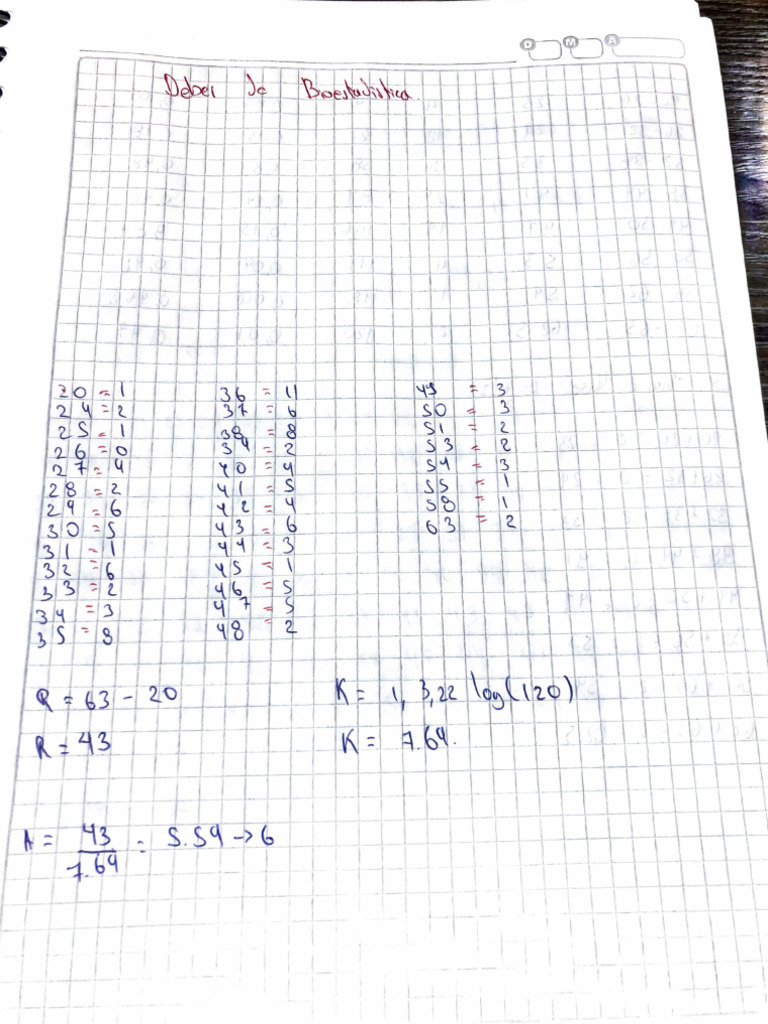 D M A
Deber de Bioestadística.
20 = 1
24 = 2
25 = 1
26 = 0
27 = 4
28 = 2
29 = 6
30 = 5
31 = 1
32 = 6
33 = 2
34 = 3
35 = 8
36 = 11
37 = 6
38 = 8
39 = 2
40 = 4
41 = 5
42 = 4
43 = 6
44 = 3
45 = 1
46 = 5
47 = 5
48 = 2
49 = 3
50 = 3
51 = 2
53 = 2
54 = 3
55 = 1
58 = 1
63 = 2
R = 63 - 20
R = 43
K = 1, 3,22 log(120)
K = 7.69.
A = 43 / 7.69 = 5.59 → 6